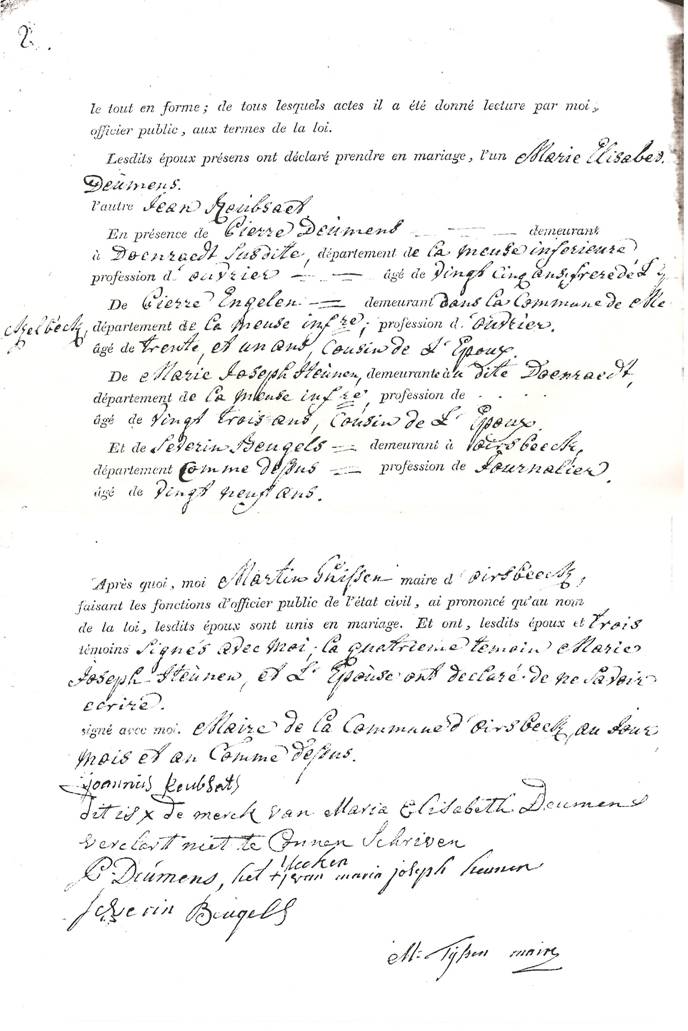 2.
le tout en forme; de tous lesquels actes il a été donné lecture par moi,
officier public, aux termes de la loi.
Lesdits époux présens ont déclaré prendre en mariage, l'un Marie Elisabet.
Deümens.
l'autre Jean Roubsaet
En présence de Pierre Deümens — — — demeurant
à Doenraedt Susdite, département de la meuse inferieure
profession d'ouvrier — — âgé de vingt cinq ans, frere dé L'
De Pierre Engelen — demeurant dans la Commune de Me
département de la meuse infre, profession d'ouvrier.
âgé de trente, et un ans, Cousin de L'Epoux.
De Marie Joseph Heünen, demeurante au dite Doenraedt,
département de la meuse infre, profession de . . .
âgé de vingt trois ans, Cousin de L'Epoux.
Et de Severin Beugels — demeurant à oirsbeeck,
département Comme dessus — profession de Journalier.
âgé de vingt neuf ans.
Après quoi, moi Martin Thissen maire d'oirsbeeck,
faisant les fonctions d'officier public de l'état civil, ai prononcé qu'au nom
de la loi, lesdits époux sont unis en mariage. Et ont, lesdits époux et trois
témoins signés avec moi; la quatrieme temoin Marie
Joseph Heünen, et L'Epoùse ont declaré de ne Savoir
ecrire.
signé avec moi. Maire de la Commune d'oirsbeck, au Jour
mois et an Comme dessus.
joannius Roubsats
dit is x de merck van Maria Elisabeth Deumens
verclart niet te Connen Schriven
P. Deümens, het + van maria joseph heunen
Severin Beugels
M: Tyssen maire